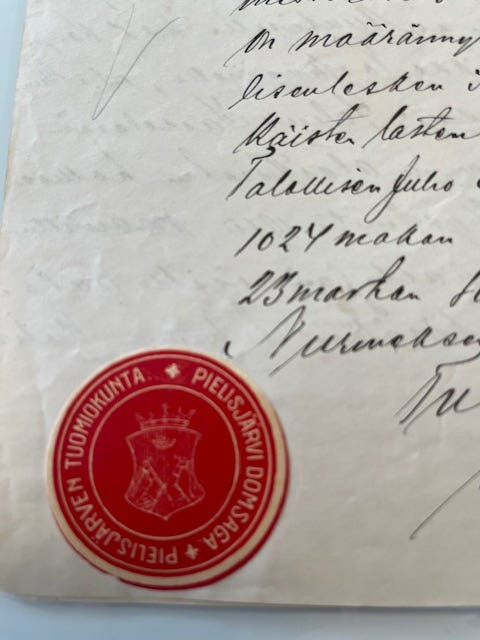 on määränny
lisenlesken
käisten lasten
Talollisen Juho
1024 markan
23 markan
Nurmeksen
PIELISJÄRVEN TUOMIOKUNTA
PIELISJÄRVI DOMSAGA